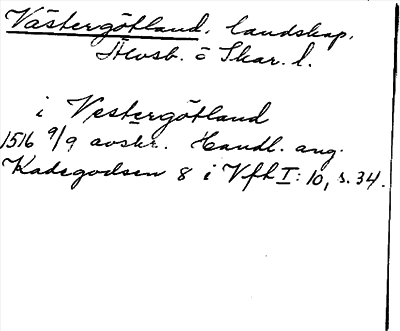 Västergötland, landskap.
Älvsb. o Skar. l.
i Vestergötland
1516 9/9 avskr. Handl. ang.
Kadegodsen 8 i Vfh I: 10, s. 34.